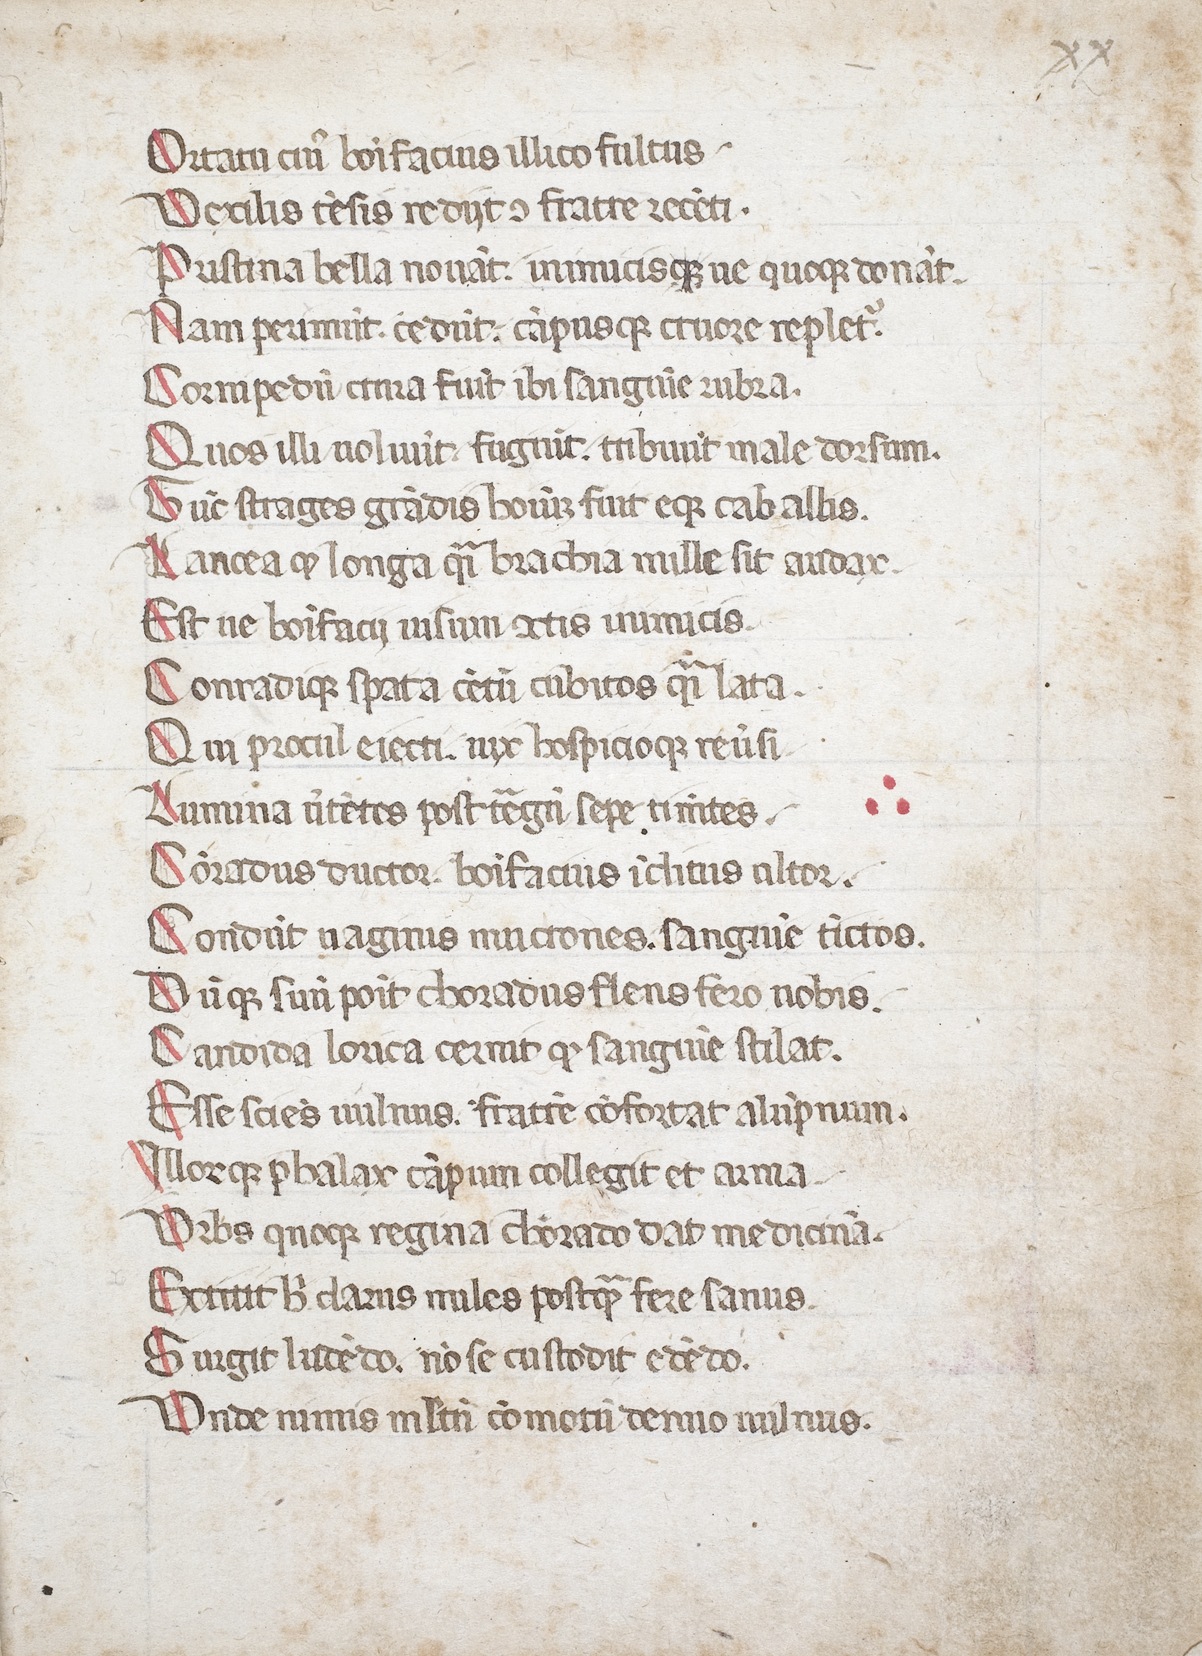 xx
Ortatu cuiꝰ boīfacius illico fultus
Vexilis tēsis redijt ɔ fratre recēti.
Pristina bella nouāt. inimicisqꝫ ue quoqꝫ donāt.
Nam perimūt. cedūt. cāpusqꝫ cruore repletᷣ.
Cornipedū crura fiūt ibi sanguīe rubra.
Quos illi uoluūt. fugiūt. tribuūt male dorsum.
Hīc strages grādis boūꝫ fiūt eqꝫ caballis.
Lancea ꝙ longa qͣi brachia mille sit audax.
Est ne boīfacij uisum xtis inimicis.
Conradiqꝫ spata cētū cubitos qͣi lata.
Qui procul eiecti. uix hospicioqꝫ reūsi
Lumina ūtētes post tēgū sepe timētes.
Cōradus ductor. boīfacius īclitus ultor.
Condūt uaginis mucrones. sanguīe tīctos.
Dūqꝫ suū poīt choradus flens fero nobis.
Candida lorica cernit ꝙ sanguīe stilat.
Esse sciēs uulnus. fratrē cōfortat alūpnum.
Illorqꝫ phalax cāpum collegit et arma
Vrbs quoqꝫ regina chōrado dat medicinā.
Extitit h̄ clarus miles postqͣꝫ fere sanus.
Surgit ludēdo. nō se custodit edēdo.
Vnde nimis mltū cōmotū denuo uulnus.